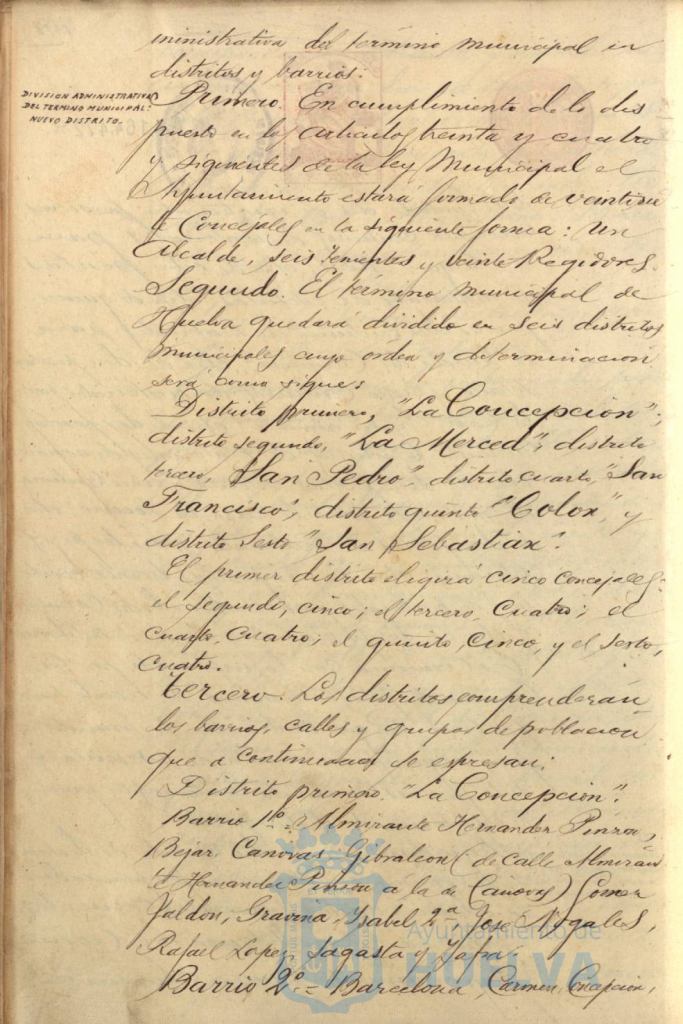 ministrativa del término municipal en
distritos y barrios:
DIVISION ADMINISTRATIVA
DEL TERMINO MUNICIPAL:
NUEVO DISTRITO.
Primero. En cumplimiento de lo dis
puesto en los artículos treinta y cuatro
y siguientes de la ley Municipal el
Ayuntamiento estará formado de veintisie
te Concejales en la siguiente forma: Un
Alcalde, seis tenientes y veinte Regidores.
Segundo. El término municipal de
Huelva quedará dividido en seis distritos
municipales cuyo órden y determinacion
será como sigue:
Distrito primero, "La Concepcion";
distrito segundo, "La Merced"; distrito
tercero, "San Pedro"; distrito cuarto, "San
Francisco"; distrito quinto "Colon" y
distrito Sesto "San Sebastian".
El primer distrito eligirá cinco concejales;
el segundo, cinco; el tercero, cuatro; el
cuarto, cuatro; el quinto, cinco, y el sesto,
cuatro.
Tercero. Los distritos comprenderán
los barrios, calles y grupos de poblacion
que a continuacion se espresan:
Distrito primero. "La Concepcion".
Barrio 1º = Almirante Hernandez Pinzon,
Bejar, Canovas, Gibraleon (de calle Almiran
te Hernandez Pinzon á la de Canovas) Gomez
Jaldon, Gravina, Isabel 2ª, Jose Nogales,
Rafael Lopez, Sagasta y Zafra.
Barrio 2º = Barcelona, Carmen, Concepcion,
Ayuntamiento de
HUELVA